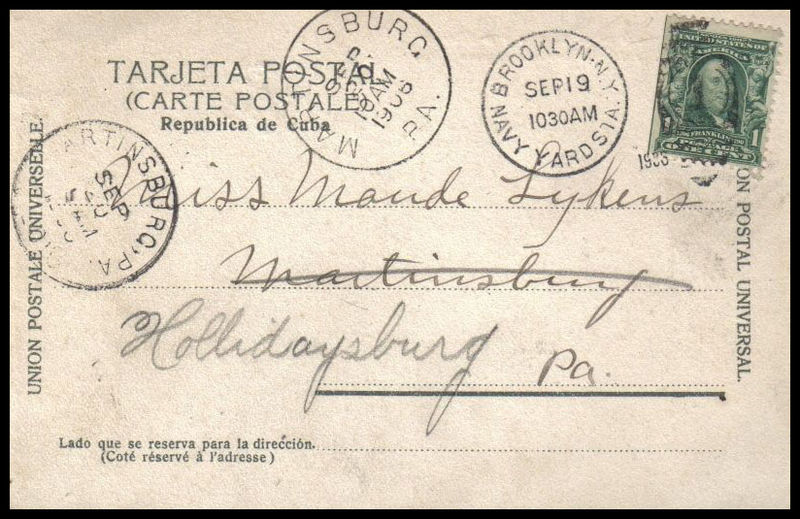 TARJETA POSTAL
(CARTE POSTALE)
Republica de Cuba
MARTINSBURG
SEP
10 AM
1906
PA.
BROOKLYN. N.Y.
SEP 19
1030AM
NAVY YARD STA.
UNITED STATES OF
AMERICA
FRANKLIN
POSTAGE
1
ONE CENT
MARTINSBURG, PA.
SEP
UNION POSTALE UNIVERSELLE.
ON POSTAL UNIVERSAL.
Miss Maude Lykens
Martinsburg
Hollidaysburg
Pa.
Lado que se reserva para la dirección.
(Coté réservé à l'adresse)